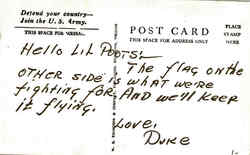 Defend your country—
Join the U. S. Army.
THIS SPACE FOR MESSAGE
POST CARD
THIS SPACE FOR ADDRESS ONLY
PLACE
STAMP
HERE
Hello Lil
The flag on the
other side is what we're
fighting for. And we'll keep
it flying.
Love,
Duke